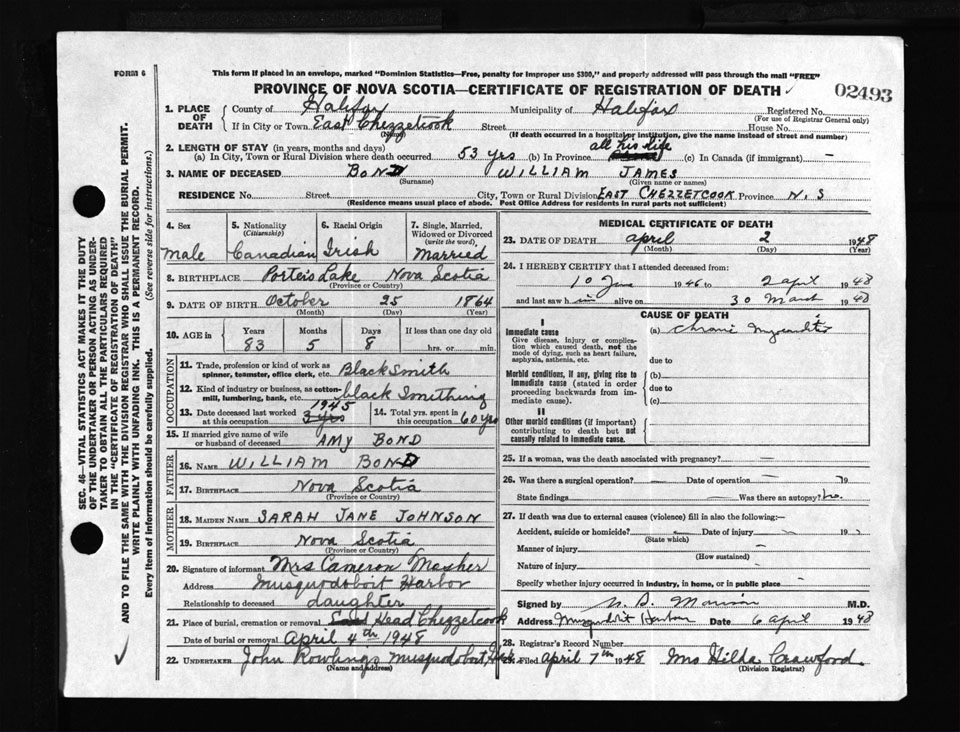 FORM 6
This form if placed in an envelope, marked "Dominion Statistics—Free, penalty for improper use $300," and properly addressed will pass through the mail "FREE"
PROVINCE OF NOVA SCOTIA—CERTIFICATE OF REGISTRATION OF DEATH ✓
02493
1. PLACE OF DEATH
County of Halifax Municipality of Halifax Registered No.
(For use of Registrar General only)
If in City or Town East Chezzetcook Street House No.
(Name)
(If death occurred in a hospital or institution, give the name instead of street and number)
2. LENGTH OF STAY (in years, months and days)
(a) In City, Town or Rural Division where death occurred 53 yrs (b) In Province all his life (c) In Canada (if immigrant) —
3. NAME OF DECEASED BOND WILLIAM JAMES
(Surname) (Given name or names)
RESIDENCE No. Street City, Town or Rural Division EAST CHEZZETCOOK Province N.S
(Residence means usual place of abode. Post Office Address for residents in rural parts not sufficient)
4. Sex
Male
5. Nationality
(Citizenship)
Canadian
6. Racial Origin
Irish
7. Single, Married, Widowed or Divorced
(write the word)
Married
8. BIRTHPLACE Porters Lake Nova Scotia
(Province or Country)
9. DATE OF BIRTH October 25 1864
(Month) (Day) (Year)
10. AGE in
Years Months Days If less than one day old
83 5 8 hrs. or min.
OCCUPATION
11. Trade, profession or kind of work as spinner, teamster, office clerk, etc. BlackSmith
12. Kind of industry or business, as cotton-mill, lumbering, bank, etc. black Smithing
13. Date deceased last worked at this occupation 1945 3 yrs
14. Total yrs. spent in this occupation 60 yrs
15. If married give name of wife or husband of deceased AMY BOND
FATHER
16. NAME WILLIAM BOND
17. BIRTHPLACE Nova Scotia
(Province or Country)
MOTHER
18. MAIDEN NAME SARAH JANE JOHNSON
19. BIRTHPLACE Nova Scotia
(Province or Country)
20. Signature of informant Mrs Cameron Mosher
Address Musquodoboit Harbor
Relationship to deceased daughter
21. Place of burial, cremation or removal East Head Chezzetcook
Date of burial or removal April 4th 1948
22. UNDERTAKER John Rowlings Musquodoboit
(Name and address)
MEDICAL CERTIFICATE OF DEATH
23. DATE OF DEATH april 2 1948
(Month) (Day) (Year)
24. I HEREBY CERTIFY that I attended deceased from:
10 June 1946 to 2 april 1948
and last saw him alive on 30 March 1948
CAUSE OF DEATH
I
Immediate cause
Give disease, injury or complication which caused death, not the mode of dying, such as heart failure, asphyxia, asthenia, etc.
(a) Chronic Myocarditis
due to
Morbid conditions, if any, giving rise to immediate cause (stated in order proceeding backwards from immediate cause).
(b)
due to
(c)
II
Other morbid conditions (if important) contributing to death but not causally related to immediate cause.
25. If a woman, was the death associated with pregnancy? —
26. Was there a surgical operation? — Date of operation — 19
State findings — Was there an autopsy? no.
27. If death was due to external causes (violence) fill in also the following:—
Accident, suicide or homicide? Date of injury 19
(State which)
Manner of injury —
(How sustained)
Nature of injury —
Specify whether injury occurred in industry, in home, or in public place —
Signed by M.D.
Address Musquodoboit Harbour Date 6 april 1948
28. Registrar's Record Number
29. Filed April 7th 1948 Mrs Hilda Crawford
(Division Registrar)
SEC. 46—VITAL STATISTICS ACT MAKES IT THE DUTY
OF THE UNDERTAKER OR PERSON ACTING AS UNDER-
TAKER TO OBTAIN ALL THE PARTICULARS REQUIRED
IN THE "CERTIFICATE OF REGISTRATION OF DEATH"
AND TO FILE THE SAME WITH THE DIVISION REGISTRAR WHO SHALL ISSUE THE BURIAL PERMIT.
WRITE PLAINLY WITH UNFADING INK. THIS IS A PERMANENT RECORD.
Every item of information should be carefully supplied. (See reverse side for instructions.)